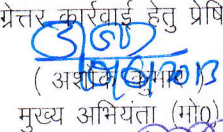 ग्रेत्तर कार्रवाई हेतु प्रेषि
( अशोक कुमार )
मुख्य अभियंता (मो0)